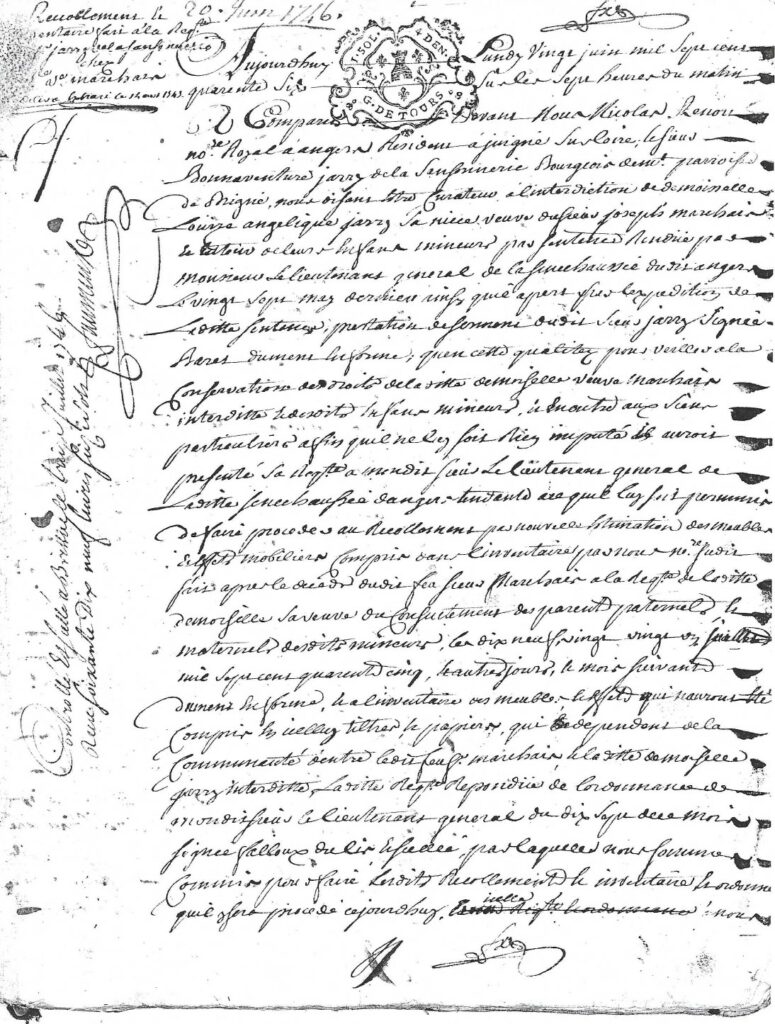 Recoollement le 20 Juin 1746.
ventaire fait à la Reqte
jarry de la sansonnerie
chez
marchais
1 SOL 4 DEN.
G. DE TOURS
Aujourdhuy Lundy Vingt juin mil sept cent
quarente six sur les sept heures du matin
Comparé devant Nous Nicolas Renou
nore Royal a angers Resident a juigné sur loire, le sieur
Bonnaventure jarry de la Sansonnerie Bourgeois demt parroisse
de Brigné, nous disant Estre Curateur a l'interdiction de demoiselle
Louise angelique jarry sa niece veuve du sieur joseph marchais
et tuteur de leurs Enfans mineurs par sentence Rendüe par
monsieur le lieutenant general de la senechaussée dudit angers
le vingt sept may dernier ainsy quil apert par lexpedition de
Laditte sentence, prestation de serment dudit sieur jarry signée
dument En forme, quen cette qualitez pour veiller a la
Conservation des droits de la ditte demoiselle veuve marchais
interditte et desdits Enfans mineurs, et Enoutre aux siens
particuliers affin quil ne luy soit Rien imputé il auroit
presenté sa Reqte a mondit sieur Le lieutenant general de
Laditte senechaussée dangers tendante a ce quil luy soit permis
de faire proceder au Recollement par nouvelle Estimation des meubles
Effets mobiliers Compris dans l'inventaire par nous nore susdit
fait apres le deceds dudit feu sieur Marchais a la Reqte de laditte
demoiselle sa veuve du Consentement des parents paternels et
maternels desdits mineurs, les dix neuf, vingt, vingt un juillet
mil sept cent quarente cinq, et autres jours, et mois suivant
dument En forme, et a linventaire des meubles et Effets qui nauront Eté
Compris En icelluy tiltres et papiers, qui dependent de la
Communauté dentre ledit feu sr marchais et la ditte demoiselle
jarry interditte, Laditte Reqte Repondüe de lordonnance de
mondit sieur le lieutenant general du dix sept de ce mois
signée falloux du lis Et scellée, par laquelle nous sommes
Commis pour faire lesdits Recollement et inventaire Et ordonne
quil y sera procedé cejourdhuy, icelle nous
Controllé Et scellé a Brissac le Juillet 1746
Reçu soixante dix neuf livres